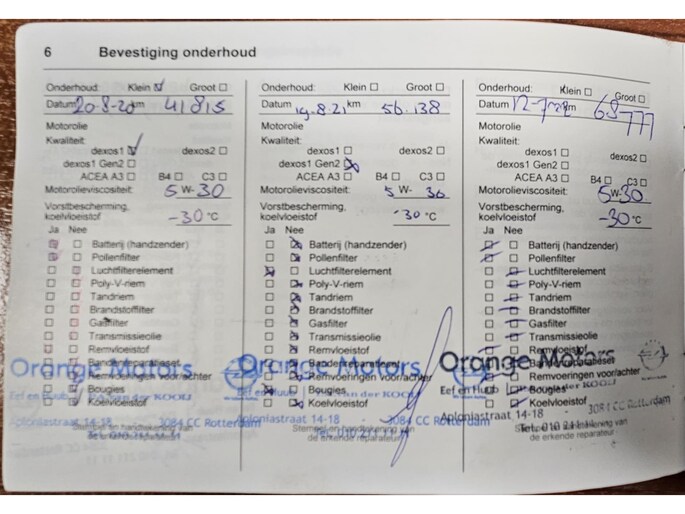 6 Bevestiging onderhoud
Onderhoud: Klein Groot
Datum 20-8-20 km 41815
Motorolie
Kwaliteit:
dexos1 dexos2
dexos1 Gen2
ACEA A3 B4 C3
Motorolieviscositeit: 5 W- 30
Vorstbescherming,
koelvloeistof -30 °C
Ja Nee
Batterij (handzender)
Pollenfilter
Luchtfilterelement
Poly-V-riem
Tandriem
Brandstoffilter
Gasfilter
Transmissieolie
Remvloeistof
Bandenreparatieset
Remvoeringen voor/achter
Bougies
Koelvloeistof
Orange Motors
Eef en Huub van der KOOIJ
Aploniastraat 14-18
3084 CC Rotterdam
Stempel en handtekening van
Onderhoud: Klein Groot
Datum 19.8.21 km 56.138
Motorolie
Kwaliteit:
dexos1 dexos2
dexos1 Gen2
ACEA A3 B4 C3
Motorolieviscositeit: 5 W- 30
Vorstbescherming,
koelvloeistof -30 °C
Ja Nee
Batterij (handzender)
Pollenfilter
Luchtfilterelement
Poly-V-riem
Tandriem
Brandstoffilter
Gasfilter
Transmissieolie
Remvloeistof
Bandenreparatieset
Remvoeringen voor/achter
Bougies
Koelvloeistof
Orange Motors
Eef en Huub van der KOOIJ
Aploniastraat 14-18
3084 CC Rotterdam
Stempel en handtekening van
de erkende reparateur
Onderhoud: Klein Groot
Datum 12-7-22 km 68777
Motorolie
Kwaliteit:
dexos1 dexos2
dexos1 Gen2
ACEA A3 B4 C3
Motorolieviscositeit: 5 W- 30
Vorstbescherming,
koelvloeistof -30 °C
Ja Nee
Batterij (handzender)
Pollenfilter
Luchtfilterelement
Poly-V-riem
Tandriem
Brandstoffilter
Gasfilter
Transmissieolie
Remvloeistof
Bandenreparatieset
Remvoeringen voor/achter
Bougies
Koelvloeistof
Orange Motors
Eef en Huub
Aploniastraat 14-18
3084 CC Rotterdam
Stempel en handtekening van
de erkende reparateur